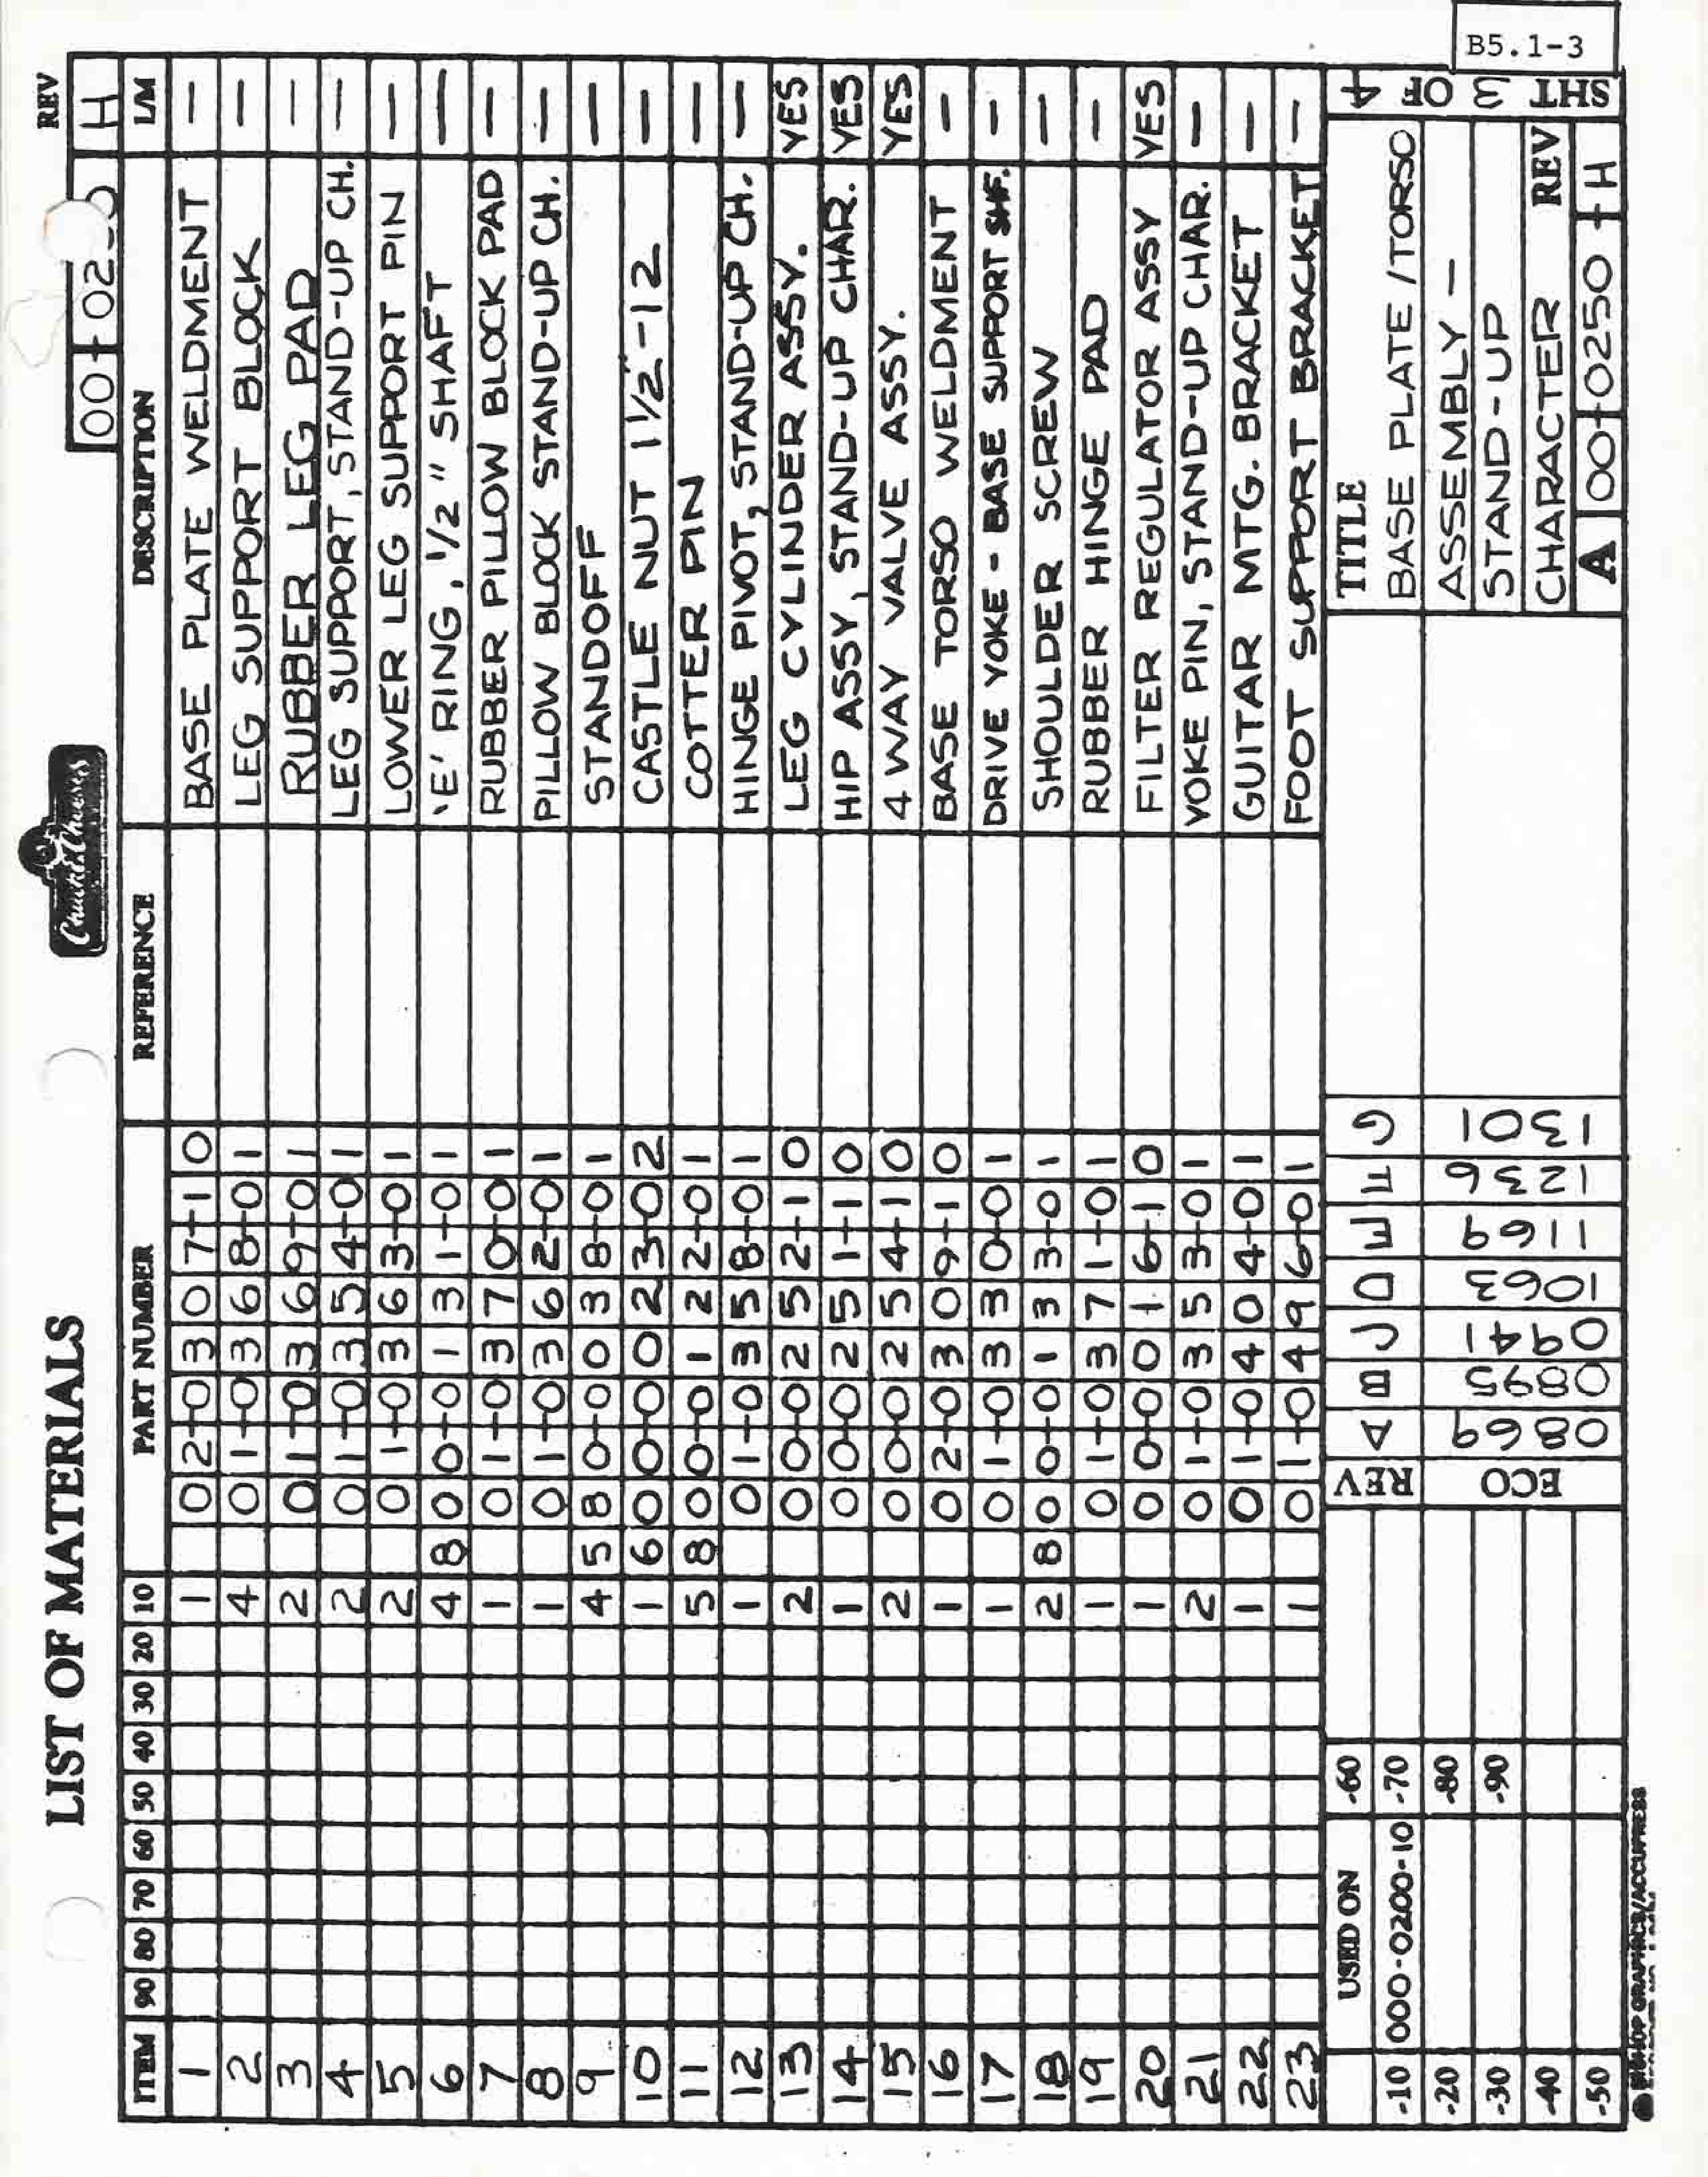 B5.1-3
LIST OF MATERIALS
Chuck E. Cheese's
REV
00-02 H
ITEM 90 80 70 60 50 40 30 20 10 PART NUMBER REFERENCE DESCRIPTION L/M
1 1 02-0307-10 BASE PLATE WELDMENT —
2 4 01-0368-01 LEG SUPPORT BLOCK —
3 2 01-0369-01 RUBBER LEG PAD —
4 2 01-0354-01 LEG SUPPORT, STAND-UP CH. —
5 2 01-0363-01 LOWER LEG SUPPORT PIN —
6 4 800-0131-01 'E' RING, 1/2" SHAFT —
7 1 01-0370-01 RUBBER PILLOW BLOCK PAD —
8 1 01-0362-01 PILLOW BLOCK STAND-UP CH. —
9 4 580-0038-01 STANDOFF —
10 1 600-0023-02 CASTLE NUT 1 1/2"-12 —
11 5 800-0122-01 COTTER PIN —
12 1 01-0358-01 HINGE PIVOT, STAND-UP CH. —
13 2 00-0252-10 LEG CYLINDER ASSY. YES
14 1 00-0251-10 HIP ASSY, STAND-UP CHAR. YES
15 2 00-0254-10 4 WAY VALVE ASSY. YES
16 1 02-0309-10 BASE TORSO WELDMENT —
17 1 01-0330-01 DRIVE YOKE - BASE SUPPORT SHF. —
18 2 800-0133-01 SHOULDER SCREW —
19 1 01-0371-01 RUBBER HINGE PAD —
20 1 00-0016-10 FILTER REGULATOR ASSY YES
21 2 01-0353-01 YOKE PIN, STAND-UP CHAR. —
22 1 01-0404-01 GUITAR MTG. BRACKET —
23 1 01-0496-01 FOOT SUPPORT BRACKET —
USED ON
-10 000-0200-10
-20
-30
-40
-50
-60
-70
-80
-90
REV A B C D E F G
ECO 0869 0895 0941 1063 1169 1236 1301
TITLE
BASE PLATE/TORSO
ASSEMBLY —
STAND-UP
CHARACTER REV
A 00-0250- H
SHT 3 OF 4
BISHOP GRAPHICS/ACCUPRESS